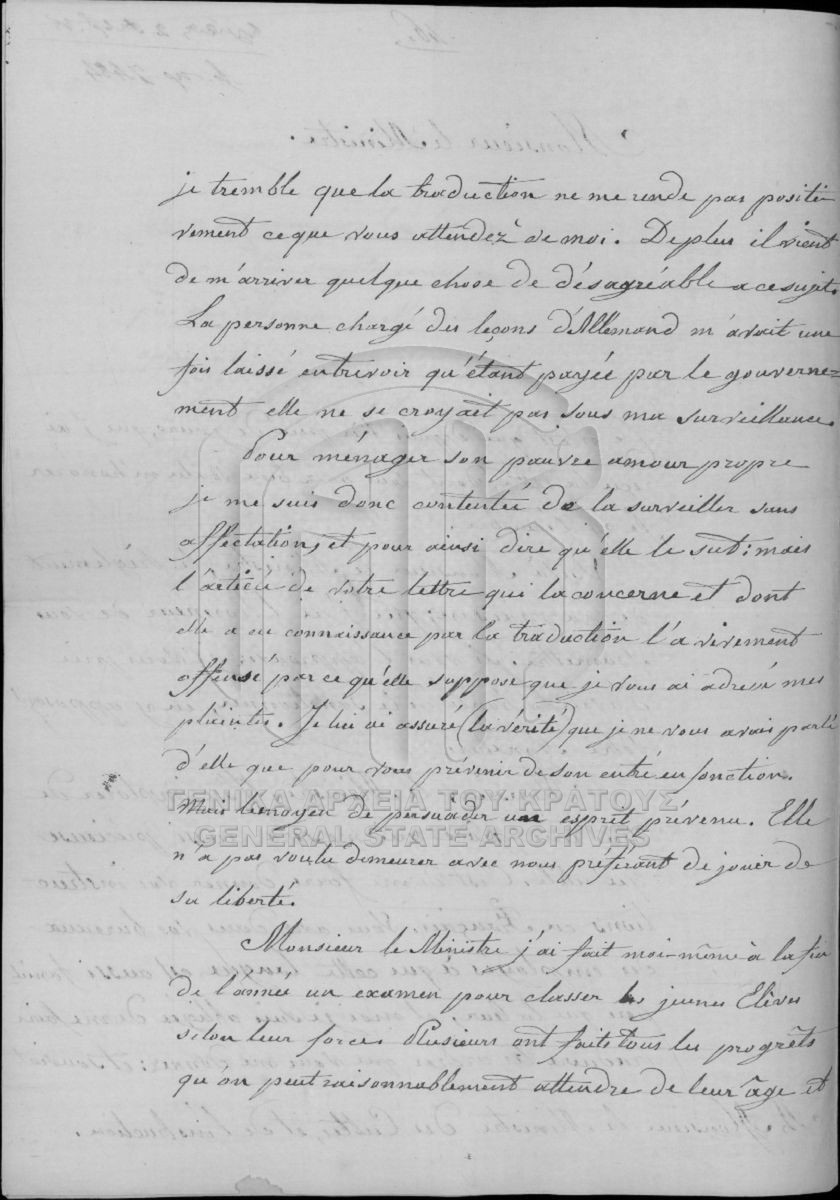 je tremble que la traduction ne me rende pas positi
vement ce que vous attendez de moi. De plus il vient
de m'arriver quelque chose de désagréable a ce sujet.
La personne chargé des leçons d'Allemand m'avait une
fois laissé entrevoir qu'étant payée par le gouverne=
ment elle ne se croyait pas sous ma surveillance.
Pour ménager son pauvre amour propre
je me suis donc contentée de la surveiller sans
affectation, et pour ainsi dire qu'elle le sut: mais
l'article de votre lettre qui la concerne et dont
elle a eu connaissance par la traduction l'a vivement
offensé parce qu'elle suppose que je vous ai adressé mes
plaintes. Je lui ai assuré (la vérité) que je ne vous avais parlé
d'elle que pour vous prévenir de son entré en fonction.
Mais le moyen de persuader un esprit prévenu. Elle
n'a pas voulu demeurer avec nous préférant de jouir de
sa liberté.
Monsieur le Ministre j'ai fait moi-même à la fin
de l'année un examen pour classer les jeunes Elèves
selon leur force. Plusieurs ont faits tous les progrêts
qu'on peut raisonnablement attendre de leur âge et
ΓΕΝΙΚΑ ΑΡΧΕΙΑ ΤΟΥ ΚΡΑΤΟΥΣ
GENERAL STATE ARCHIVES